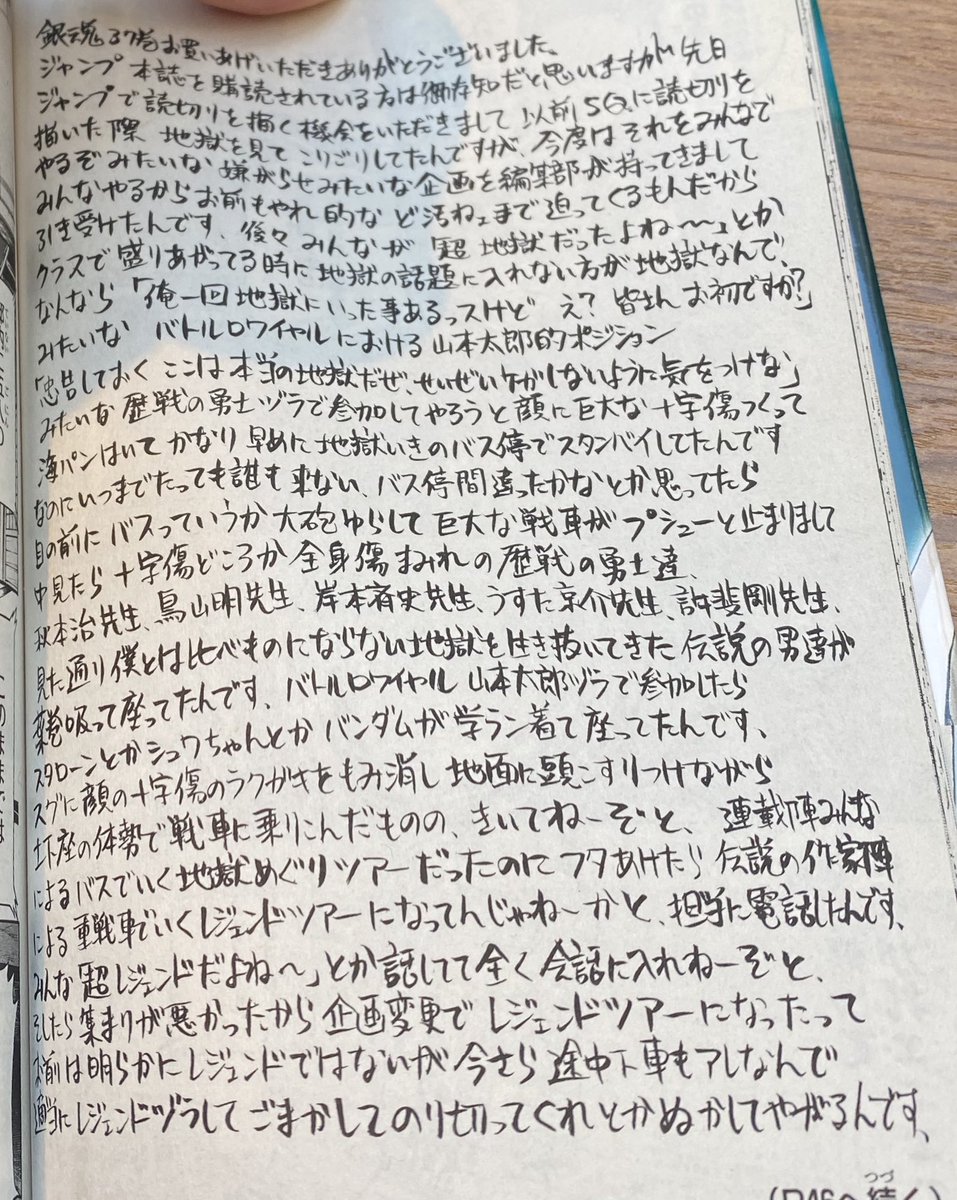 銀魂37巻お買いあげいただきありがとうございました。
ジャンプ本誌を購読されている方は御存知だと思いますが先日
ジャンプで読切りを描く機会をいただきまして以前SQに読切りを
描いた際 地獄を見て こりごりしてたんですが、今度はそれをみんなで
やるぞみたいな嫌がらせみたいな企画を編集部が持ってきまして
みんなやるからお前もやれ的な ど迄迫ってくるもんだから
引き受けたんです、後々みんなが「超地獄だったよね〜〜」とか
クラスで盛りあがってる時に地獄の話題に入れない方が地獄なんで、
なんなら「俺一回地獄にいった事あるっスけど え？皆さんお初ですか？」
みたいな バトルロワイヤルにおける山本太郎的ポジション
「忠告しておく ここは本当の地獄だぜ、せいぜいケガしないように気をつけな」
みたいな歴戦の勇士ヅラで参加してやろうと顔に巨大な十字傷つくって
海パンはいてかなり早めに地獄いきのバス停でスタンバイしてたんです
なのにいつまでたっても誰も来ない、バス停間違ったかなとか思ってたら
目の前にバスっていうか大砲ゆらして巨大な戦車がプシューと止まりまして
中見たら十字傷どころか全身傷まみれの歴戦の勇士達、
秋本治先生、鳥山明先生、岸本斉史先生、うすた京介先生、許斐剛先生、
見た通り僕とは比べものにならない地獄を生き抜いてきた伝説の男達が
葉巻吸って座ってたんです、バトルロワイヤル山本太郎ヅラで参加したら
スタローンとかシュワちゃんとかバンダムが学ラン着て座ってたんです、
スグに顔の十字傷のラクガキをもみ消し地面に頭こすりつけながら
土下座の体勢で戦車に乗りこんだものの、きいてねーぞと、連載陣みんな
によるバスでいく地獄めぐりツアーだったのにフタあけたら伝説の作家陣
による重戦車でいくレジェンドツアーになってんじゃねーかと、担当に電話したんです、
みんな「超レジェンドだよね〜」とか話してて全く会話に入れねーぞと、
そしたら集まりが悪かったから企画変更でレジェンドツアーになったって
お前は明らかにレジェンドではないが今さら途中下車もアレなんで
適当にレジェンドヅラしてごまかしてのり切ってくれとかぬかしてやがるんです、
(P46へ続く)